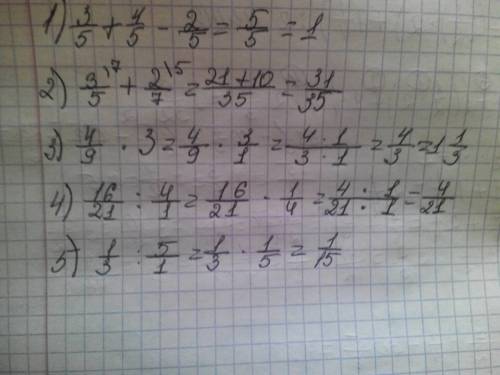 1) 3/5 + 4/5 - 2/5 = 5/5 = 1
2) 3/5\7 + 2/7\5 = 21+10/35 = 31/35
3) 4/9 · 3 = 4/9 · 3/1 = 4·1/3·1 = 4/3 = 1 1/3
4) 16/21 : 4/1 = 16/21 · 1/4 = 4/21 : 1/1 = 4/21
5) 1/3 : 5/1 = 1/3 · 1/5 = 1/15